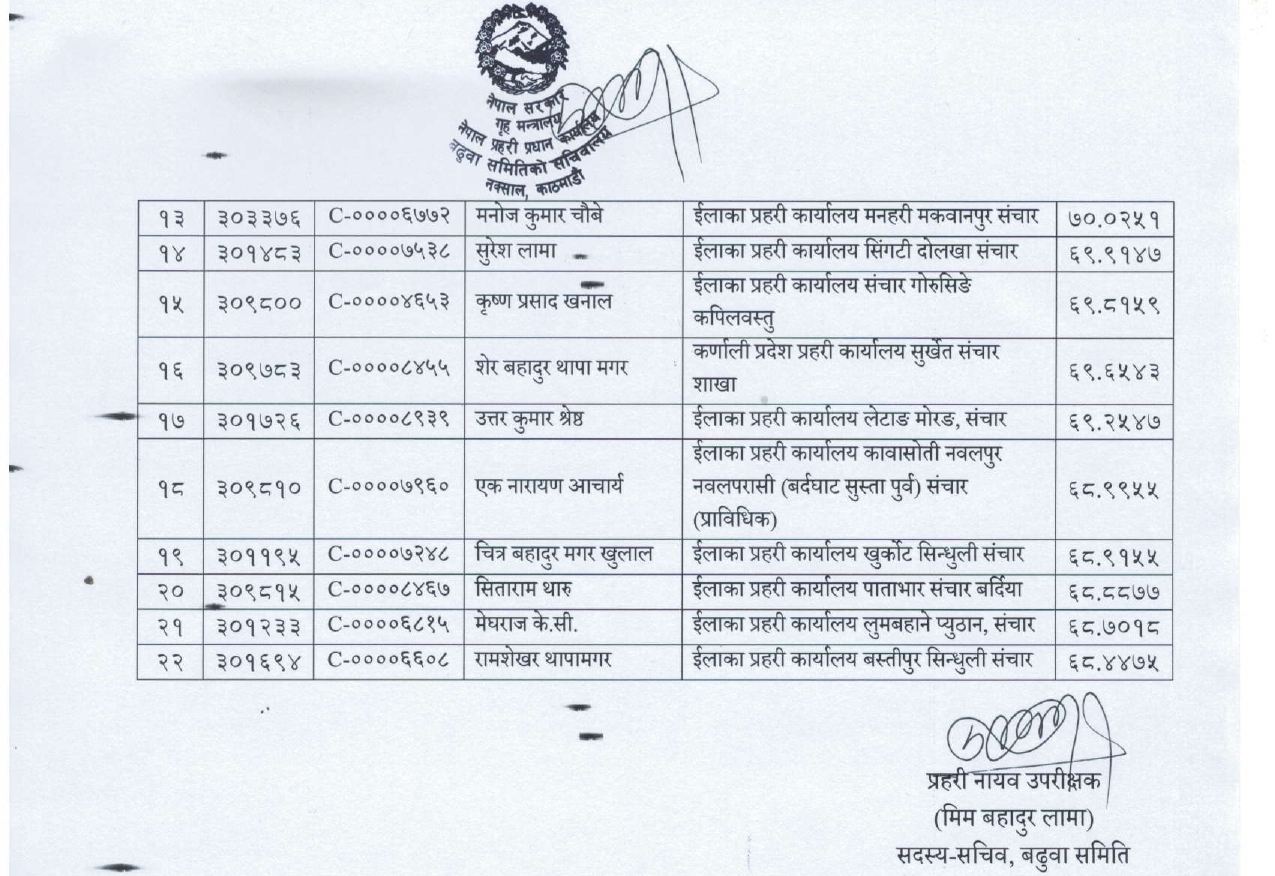 नेपाल सरकार
गृह मन्त्रालय
नेपाल प्रहरी प्रधान कार्यालय
बढुवा समितिको सचिवालय
नक्साल, काठमाडौं
१३ ३०३३७६ C-००००६७७२ मनोज कुमार चौबे ईलाका प्रहरी कार्यालय मनहरी मकवानपुर संचार ७०.०२५१
१४ ३०१४८३ C-००००७५३८ सुरेश लामा ईलाका प्रहरी कार्यालय सिंगटी दोलखा संचार ६९.९१४७
१५ ३०९८०० C-००००४६५३ कृष्ण प्रसाद खनाल ईलाका प्रहरी कार्यालय संचार गोरुसिङे
कपिलवस्तु ६९.८१५९
१६ ३०९७८३ C-००००८४५५ शेर बहादुर थापा मगर कर्णाली प्रदेश प्रहरी कार्यालय सुर्खेत संचार
शाखा ६९.६५४३
१७ ३०१७२६ C-००००८९३९ उत्तर कुमार श्रेष्ठ ईलाका प्रहरी कार्यालय लेटाङ मोरङ, संचार ६९.२५४७
१८ ३०९८१० C-००००७९६० एक नारायण आचार्य ईलाका प्रहरी कार्यालय कावासोती नवलपुर
नवलपरासी (बर्दघाट सुस्ता पुर्व) संचार
(प्राविधिक) ६८.९९५५
१९ ३०११९५ C-००००७२४८ चित्र बहादुर मगर खुलाल ईलाका प्रहरी कार्यालय खुर्कोट सिन्धुली संचार ६८.९१५५
२० ३०९८१५ C-००००८४६७ सिताराम थारु ईलाका प्रहरी कार्यालय पाताभार संचार बर्दिया ६८.८८७७
२१ ३०१२३३ C-००००६८१५ मेघराज के.सी. ईलाका प्रहरी कार्यालय लुमबहाने प्युठान, संचार ६८.७०१८
२२ ३०१६९४ C-००००६६०८ रामशेखर थापामगर ईलाका प्रहरी कार्यालय बस्तीपुर सिन्धुली संचार ६८.४४७५
प्रहरी नायव उपरीक्षक
(मिम बहादुर लामा)
सदस्य-सचिव, बढुवा समिति